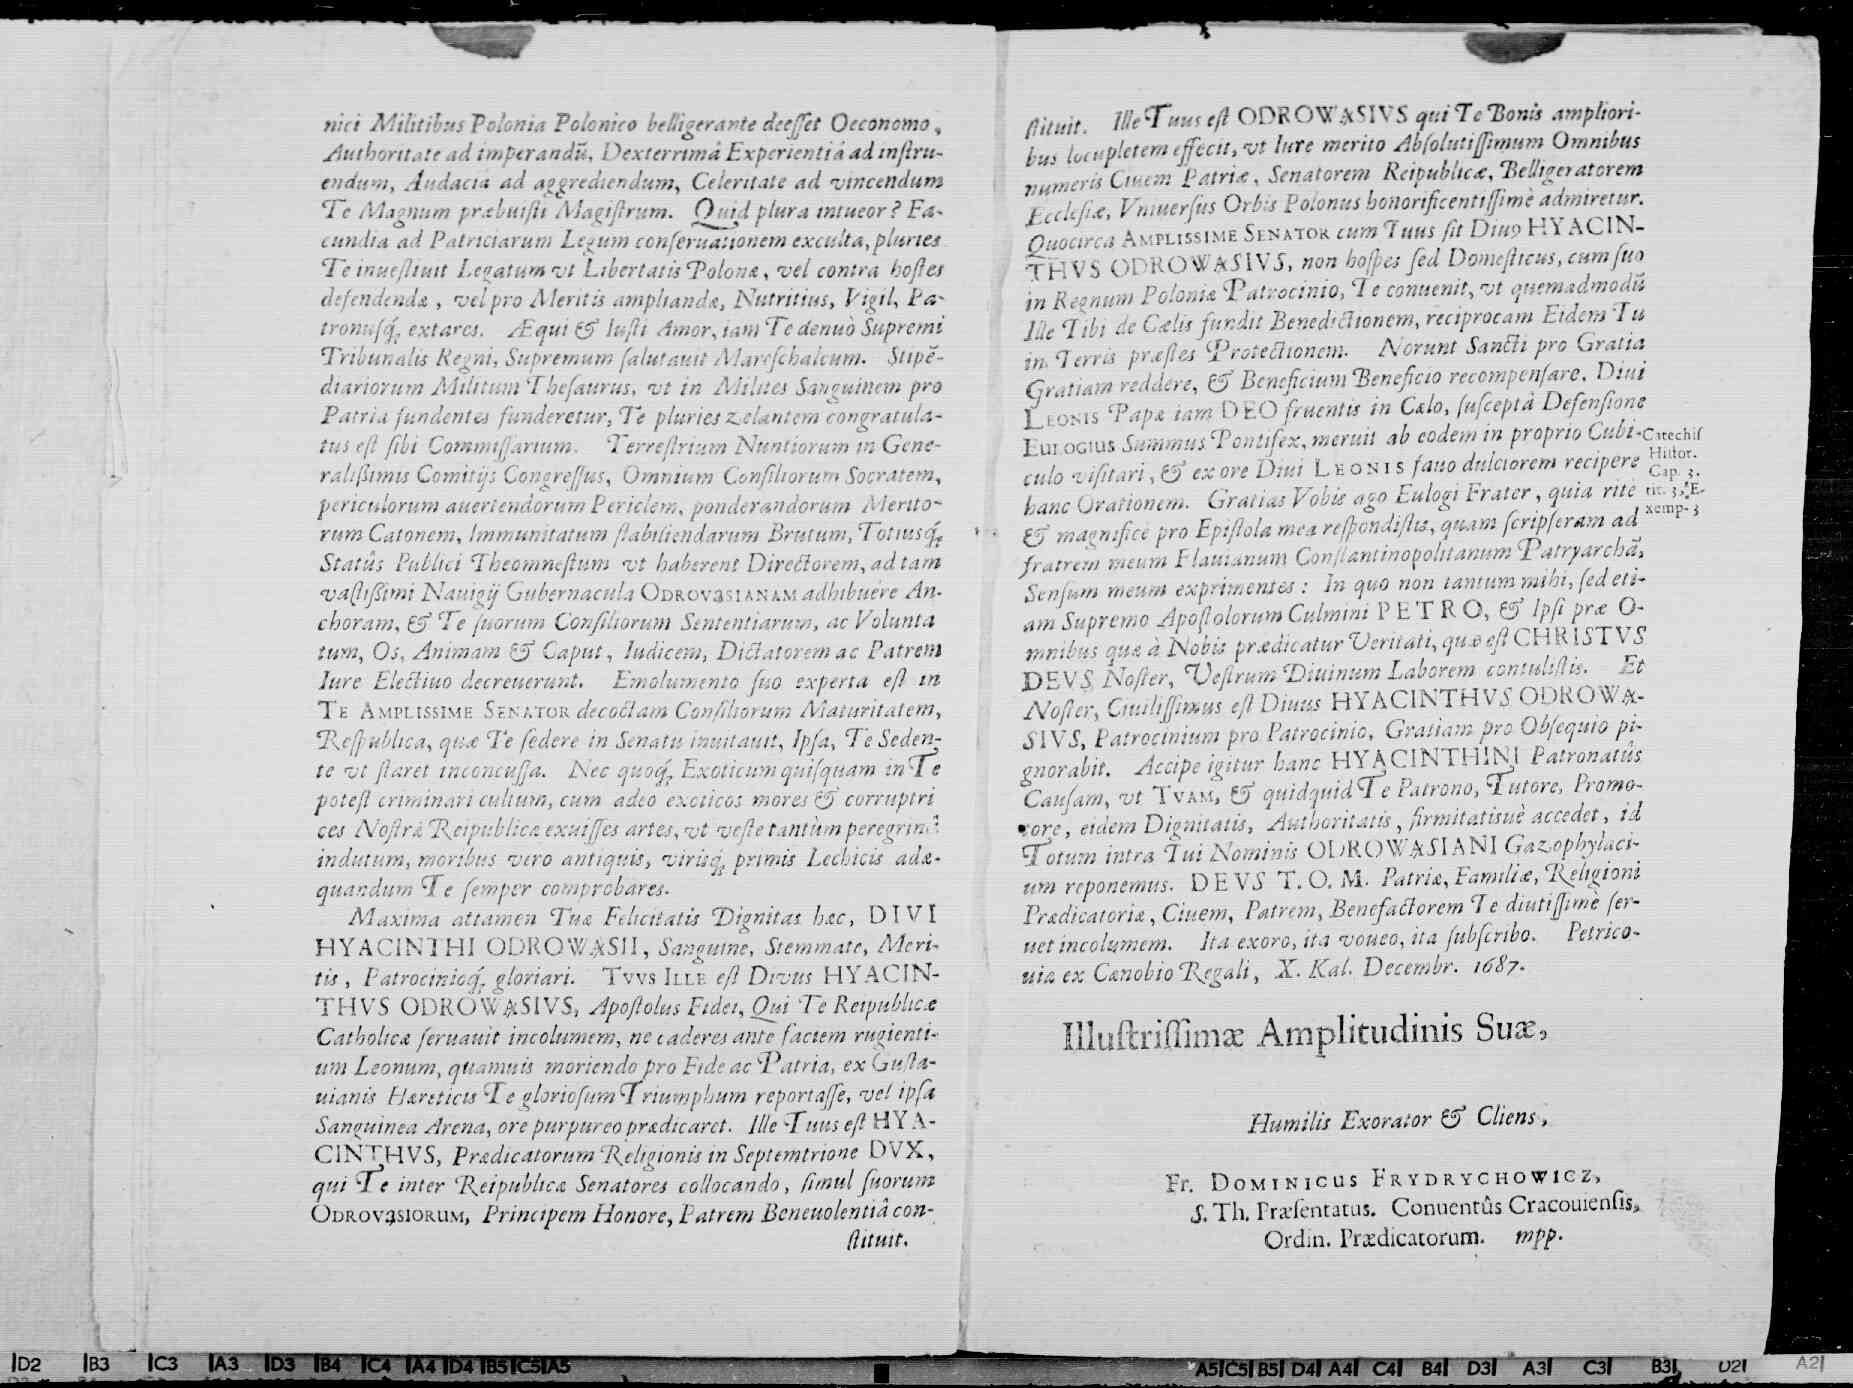 nici Militibus Polonia Polonico belligerante deesset Oeconomo,
Authoritate ad imperandũ, Dexterrimâ Experientiâ ad instru-
endum, Audacia ad aggrediendum, Celeritate ad vincendum
Te Magnum præbuisti Magistrum. Quid plura intueor? Fa-
cundia ad Patriciarum Legum conseruationem exculta, pluries
Te inuestiuit Legatum vt Libertatis Polonæ, vel contra hostes
defendendæ, vel pro Meritis ampliandæ, Nutritius, Vigil, Pa-
tronusq́; extares. Æqui & Iusti Amor, iam Te denuò Supremi
Tribunalis Regni, Supremum salutauit Mareschalcum. Stipẽ-
diariorum Militum Thesaurus, vt in Milites Sanguinem pro
Patria fundentes funderetur, Te pluries zelantem congratula-
tus est sibi Commissarium. Terrestrium Nuntiorum in Gene-
ralissimis Comitijs Congressus, Omnium Consiliorum Socratem,
periculorum auertendorum Periclem, ponderandorum Merito-
rum Catonem, Immunitatum stabiliendarum Brutum, Totiusq́;
Statûs Publici Theomnestum vt haberent Directorem, ad tam
vastissimi Nauigij Gubernacula ODROVASIANAM adhibuêre An-
choram, & Te suorum Consiliorum Sententiarum, ac Volunta
tum, Os, Animam & Caput, Iudicem, Dictatorem ac Patrem
Iure Electiuo decreuerunt. Emolumento suo experta est in
TE AMPLISSIME SENATOR decoctam Consiliorum Maturitatem,
Respublica, quæ Te sedere in Senatu inuitauit, Ipsa, Te Seden-
te vt staret inconcussa. Nec quoq́; Exoticum quisquam in Te
potest criminari cultum, cum adeo exoticos mores & corruptri
ces Nostrâ Reipublica exuisses artes, vt veste tantùm peregrinâ
indutum, moribus vero antiquis, virisq́; primis Lechicis adæ-
quandum Te semper comprobares.
Maxima attamen Tuæ Felicitatis Dignitas hæc, DIVI
HYACINTHI ODROWASII, Sanguine, Stemmate, Meri-
tis, Patrocinioq́; gloriari. TVVS ILLE est Divus HYACIN-
THVS ODROWASIVS, Apostolus Fidei, Qui Te Reipublicæ
Catholicæ seruauit incolumem, ne caderes ante faciem rugienti-
um Leonum, quamuis moriendo pro Fide ac Patria, ex Gusta-
uianis Hæreticis Te gloriosum Triumphum reportasse, vel ipsa
Sanguinea Arena, ore purpureo prædicaret. Ille Tuus est HYA-
CINTHVS, Prædicatorum Religionis in Septemtrione DVX,
qui Te inter Reipublicæ Senatores collocando, simul suorum
ODROVASIORUM, Principem Honore, Patrem Beneuolentiâ con-
stituit.
stituit. Ille Tuus est ODROWASIVS qui Te Bonis ampliori-
bus locupletem effecit, vt Iure merito Absolutissimum Omnibus
numeris Ciuem Patriæ, Senatorem Reipublicæ, Belligeratorem
Ecclesiæ, Vniuersus Orbis Polonus honorificentissimè admiretur.
Quocirca AMPLISSIME SENATOR cum Tuus sit Diuꝰ HYACIN-
THVS ODROWASIVS, non hospes sed Domesticus, cum suo
in Regnum Poloniæ Patrocinio, Te conuenit, vt quemadmodũ
Ille Tibi de Cælis fundit Benedictionem, reciprocam Eidem Tu
in Terris præstes Protectionem. Norunt Sancti pro Gratia
Gratiam reddere, & Beneficium Beneficio recompensare. Diui
LEONIS Papæ iam DEO fruentis in Cælo, susceptâ Defensione
EULOGIUS Summus Pontifex, meruit ab eodem in proprio Cubi-
culo visitari, & ex ore Diui LEONIS fauo dulciorem recipere
hanc Orationem. Gratias Vobis ago Eulogi Frater, quia ritè
& magnificè pro Epistola mea respondistis, quam scripseram ad
fratrem meum Flauianum Constantinopolitanum Patryarchã,
Sensum meum exprimentes: In quo non tantum mihi, sed eti-
am Supremo Apostolorum Culmini PETRO, & Ipsi præ O-
mnibus quæ à Nobis prædicatur Veritati, quæ est CHRISTVS
DEVS Noster, Vestrum Diuinum Laborem contulistis. Et
Noster, Ciuilissimus est Diuus HYACINTHVS ODROWA-
SIVS, Patrocinium pro Patrocinio, Gratiam pro Obsequio pi-
gnorabit. Accipe igitur hanc HYACINTHINI Patronatûs
Causam, vt TVAM, & quidquid Te Patrono, Tutore, Promo-
tore, eidem Dignitatis, Authoritatis, firmitatisuè accedet, id
Totum intra Tui Nominis ODROWASIANI Gazophylaci-
um reponemus. DEVS T.O.M. Patriæ, Familiæ, Religioni
Prædicatoriæ, Ciuem, Patrem, Benefactorem Te diutissimè ser-
uet incolumem. Ita exoro, ita voueo, ita subscribo. Petrico-
uiæ ex Cænobio Regali, X. Kal. Decembr. 1687.
Catechis
Histor.
Cap. 3.
tit. 3. E-
xemp. 3
Illustrissimæ Amplitudinis Suæ,
Humilis Exorator & Cliens,
Fr. DOMINICUS FRYDRYCHOWICZ,
S. Th. Præsentatus. Conuentûs Cracouiensis,
Ordin. Prædicatorum. mpp.
D2 B3 C3 A3 D3 B4 C4 A4 D4 B5 C5 A5
A5 C5 B5 D4 A4 C4 B4 D3 A3 C3 B3 D2 A2